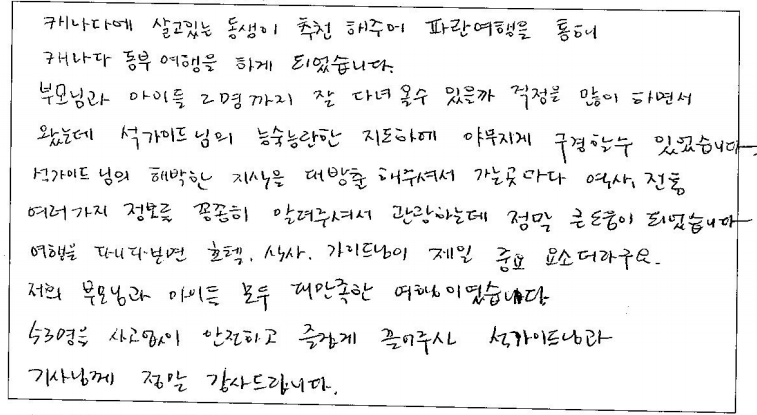 캐나다에 살고있는 동생이 추천 해주어 파란여행을 통해
캐나다 동부 여행을 하게 되었습니다.
부모님과 아이들 2명까지 잘 다녀 올수 있을까 걱정을 많이 하면서
왔는데 석가이드님의 능숙능란한 지도하에 야무지게 구경할수 있었습니다.
석가이드님의 해박한 지식을 대방출 해주셔서 가는곳마다 역사, 전통
여러가지 정보를 꽁꽁히 알려주셔서 관광하는데 정말 큰도움이 되었습니다
여행을 다니다보면 호텔, 식사, 가이드님이 제일 중요 요소더라구요.
저희 부모님과 아이들 모두 대만족한 여행이였습니다
53명을 사고없이 안전하고 즐겁게 끌어주신 석가이드님과
기사님께 정말 감사드립니다.